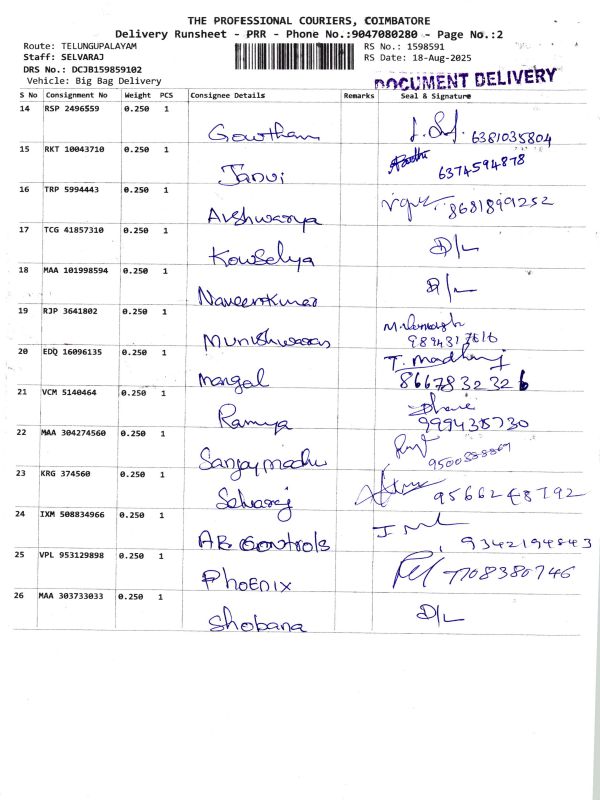 THE PROFESSIONAL COURIERS, COIMBATORE
Delivery Runsheet - PRR - Phone No.:9047080280 - Page No.:2
Route: TELUNGUPALAYAM RS No.: 1598591
Staff: SELVARAJ RS Date: 18-Aug-2025
DRS No.: DCJB159859102
Vehicle: Big Bag Delivery DOCUMENT DELIVERY
S No Consignment No Weight PCS Consignee Details Remarks Seal & Signature
14 RSP 2496559 0.250 1
Gowtham 6381035804
15 RKT 10043710 0.250 1
Janvi 6374594878
16 TRP 5994443 0.250 1
Aishwarya 8681899252
17 TCG 41857310 0.250 1
Kowselya D/L
18 MAA 101998594 0.250 1
Naveenkumar D/L
19 RJP 3641802 0.250 1
Munishwaran
20 EDQ 16096135 0.250 1 T. Madhraj
Mangal 8667832326
21 VCM 5140464 0.250 1
Ramya 999438730
22 MAA 304274560 0.250 1
Sanjaymadhu
23 KRG 374560 0.250 1
Selvaraj 9566248792
24 IXM 508834966 0.250 1
AR Controls 9342194843
25 VPL 953129898 0.250 1
PhoENIX 7708380746
26 MAA 303733033 0.250 1
Shobana D/L